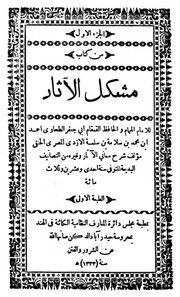 الجزء الاول
من كتاب
مشكل الآثار
للامام الهمام والحافظ القمقام أبى جعفر الطحاوى احمد
ابن محمد بن سلامة بن سلمة الازدى المصرى الحنفى
مؤلف شرح معانى الآثار وغيره من التصانيف
البديعة المتوفى سنة احدى وعشرين وثلاث
مائة
الطبعة الاولى
بمطبعة مجلس دائرة المعارف النظامية الكائنة فى الهند
بمحروسة حيدرآباد الدكن صانها الله
عن الشرور والفتن
سنة (١٣٣٣) ھ